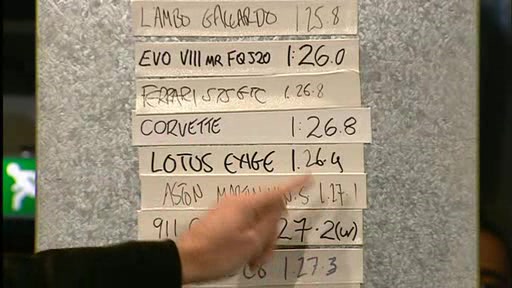 LAMBO GALLARDO 1:25.8
EVO VIII MR FQ320 1:26.0
FERRARI 575 GTC 1:26.8
CORVETTE 1:26.8
LOTUS EXIGE 1.26.9
ASTON 1.27.1
911 27.2(W)
1:27.3